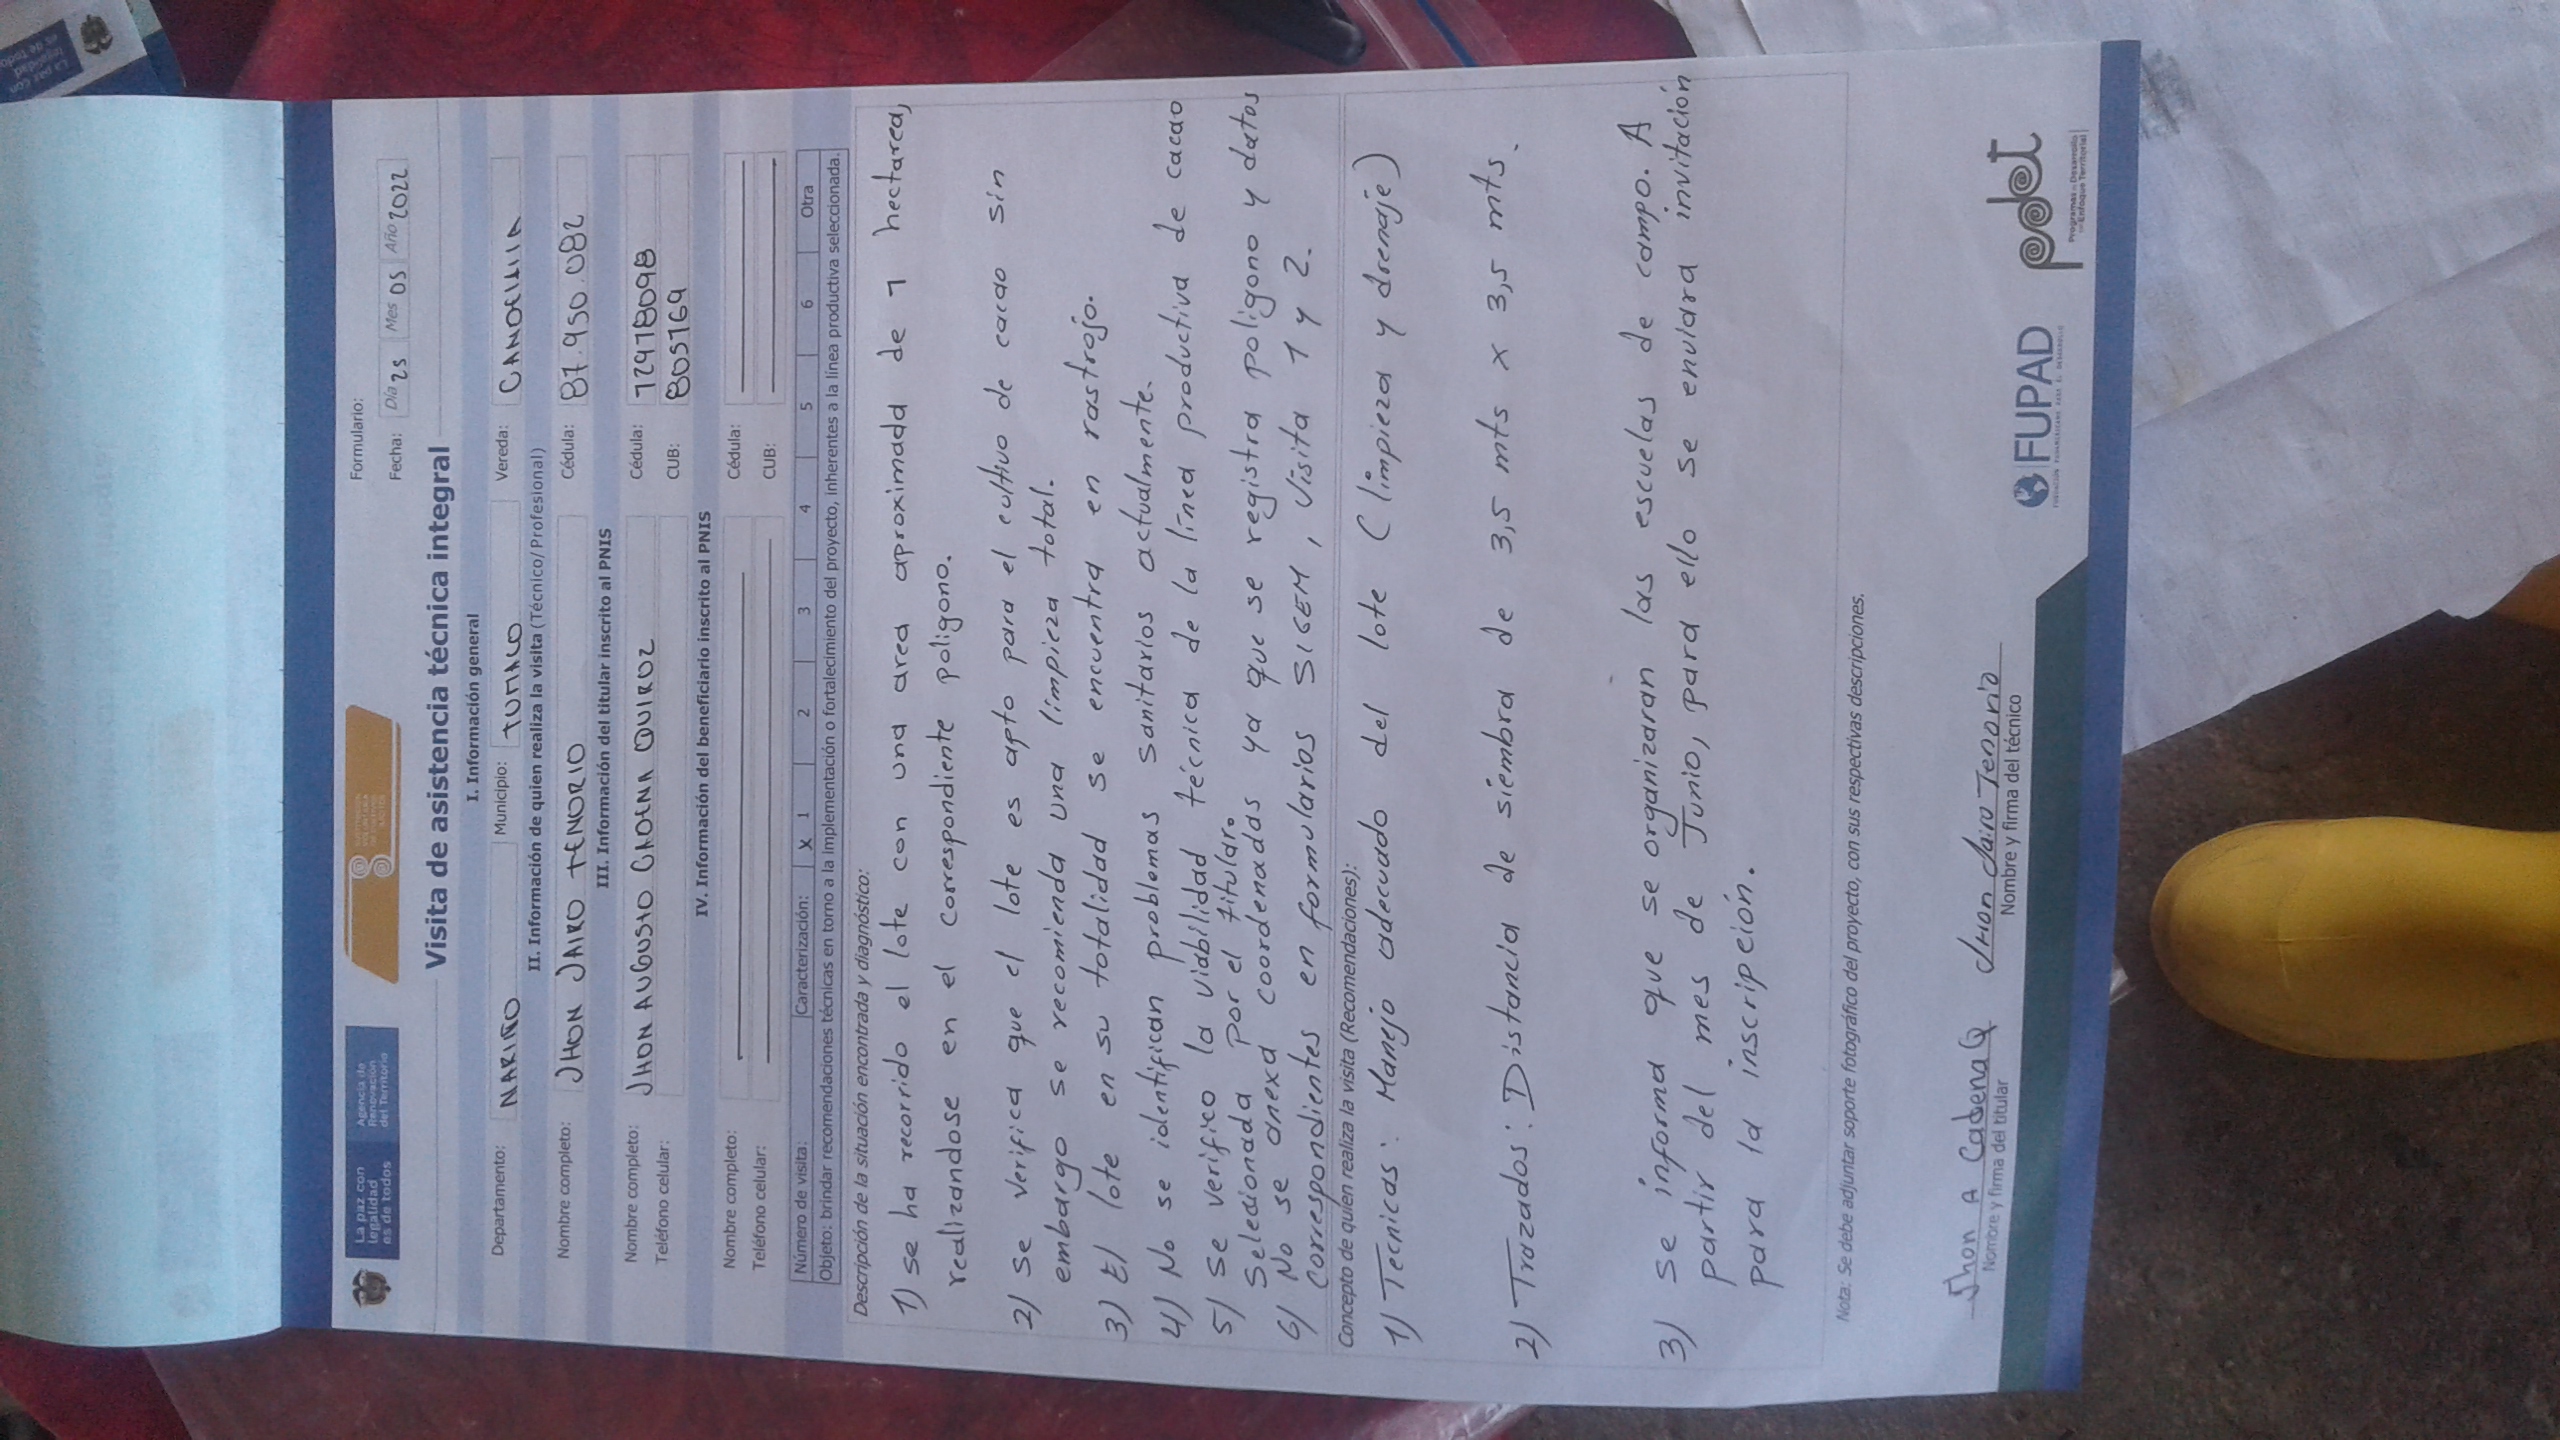 La paz con
legalidad
es de todos
Agencia de
Renovación
del Territorio
Formulario:
Fecha: Día 25 Mes 05 Año 2022
Visita de asistencia técnica integral
I. Información general
Departamento: NARIÑO Municipio: TUMACO Vereda: CANDELILLA
II. Información de quien realiza la visita (Técnico/Profesional)
Nombre completo: JHON JAIRO TENORIO Cédula: 87.950.082
III. Información del titular inscrito al PNIS
Nombre completo: JHON AUGUSTO CADENA QUIROZ Cédula: 72978098
Teléfono celular: CUB: 805769
IV. Información del beneficiario inscrito al PNIS
Nombre completo: Cédula:
Teléfono celular: CUB:
Número de visita: Caracterización: X 1 2 3 4 5 6 Otra
Objeto: brindar recomendaciones técnicas en torno a la implementación o fortalecimiento del proyecto, inherentes a la línea productiva seleccionada.
Descripción de la situación encontrada y diagnóstico:
1) se ha recorrido el lote con una area aproximada de 1 hectarea,
realizandose en el correspondiente poligono.
2) se verifica que el lote es apto para el cultivo de cacao sin
embargo se recomienda una limpieza total.
3) El lote en su totalidad se encuentra en rastrojo.
4) No se identifican problemas sanitarios actualmente.
5) se verifico la viabilidad técnica de la línea productiva de cacao
seleccionada por el titular.
6) No se anexa coordenadas ya que se registra poligono y datos
correspondientes en formularios SIGEM, Visita 1 y 2.
Concepto de quien realiza la visita (Recomendaciones):
1) Tecnicas: Manejo adecuado del lote (limpieza y drenaje)
2) Trazados: Distancia de siembra de 3,5 mts x 3,5 mts.
3) se informa que se organizaran las escuelas de campo. A
partir del mes de Junio, para ello se enviara invitación
para la inscripción.
Nota: Se debe adjuntar soporte fotográfico del proyecto, con sus respectivas descripciones.
Jhon A Cadena Q Jhon Jairo Tenorio
Nombre y firma del titular Nombre y firma del técnico
FUPAD
pdet
Programas de Desarrollo
con Enfoque Territorial